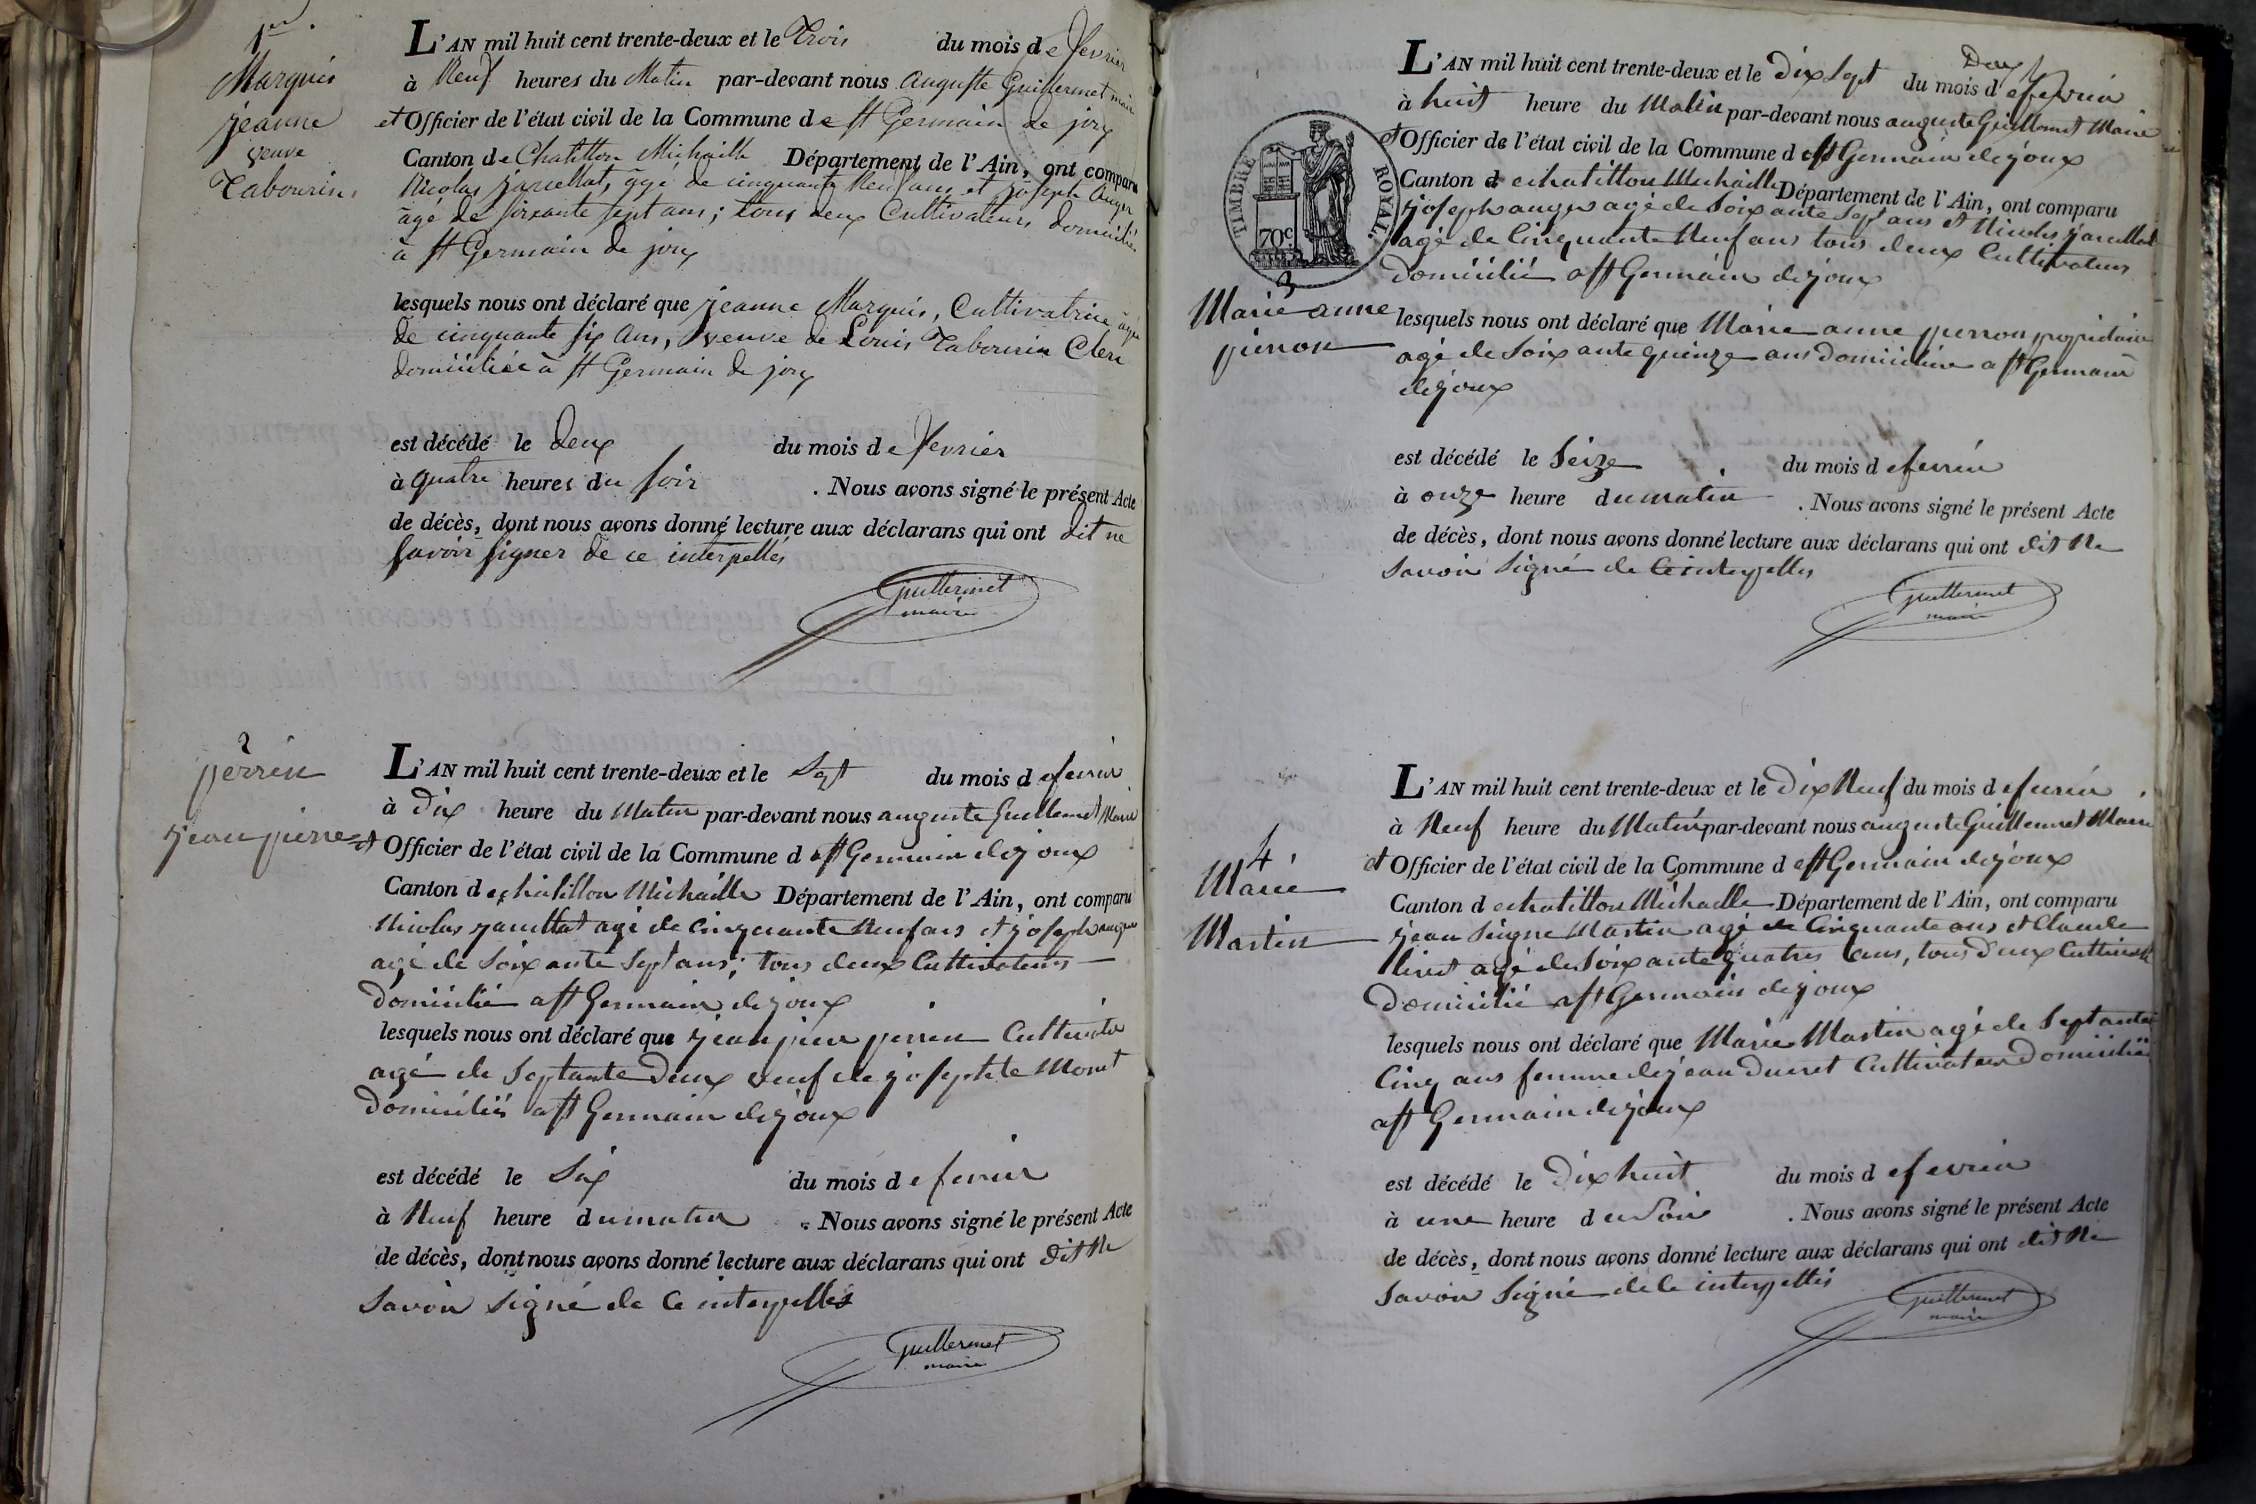 1er
Marquis
jeanne
veuve
Tabourin
L'AN mil huit cent trente-deux et le trois du mois de fevrier
à Neuf heures du Matin par-devant nous Auguste Guillermet maire
et Officier de l'état civil de la Commune de st Germain de joux
Canton de Chatillon Michaille Département de l'Ain, ont comparu
Nicolas jancellat, âgé de cinquante Neuf ans et joseph Auger
âgé de soixante sept ans; tous deux Cultivateurs domiciliés
à st Germain de joux
lesquels nous ont déclaré que jeanne Marquis, Cultivatrice âgée
de cinquante six ans, veuve de Louis Tabourin Clerc
domiciliée à st Germain de joux
est décédé le deux du mois de fevrier
à quatre heures du soir . Nous avons signé le présent Acte
de décès, dont nous avons donné lecture aux déclarans qui ont dit ne
savoir signer de ce interpellés
Guillermet
maire
2
perrin
jean pierre
L'AN mil huit cent trente-deux et le Sept du mois de fevrier
à Dix heure du Matin par-devant nous auguste Guillermet Maire
et Officier de l'état civil de la Commune de st Germain de joux
Canton de chatillon Michaille Département de l'Ain, ont comparu
Nicolas jancellat agé de Cinquante Neuf ans et joseph auger
agé de Soixante Sept ans; tous deux Cultivateurs
Domicilié a st Germain de joux
lesquels nous ont déclaré que jean pierre perrin Cultivater
agé de Septante Deux veuf de josephte Monet
Domiciliés a st Germain de joux
est décédé le Six du mois de fevrier
à Neuf heure du matin . Nous avons signé le présent Acte
de décès, dont nous avons donné lecture aux déclarans qui ont dit Ne
Savoir Signé de Ce interpellés
Guillermet
maire
Deux
L'AN mil huit cent trente-deux et le Dix Sept du mois de fevrier
à huit heure du Matin par-devant nous auguste Guillermet Maire
et Officier de l'état civil de la Commune de st Germain de joux
Canton de chatillon Michaille Département de l'Ain, ont comparu
joseph auger agé de Soixante Sept ans et Nicolas jancellat
agé de Cinquante Neuf ans tous deux Cultivateurs
Domicilié a st Germain de joux
TIMBRE ROYAL.
70c
3
Marie anne
pierron
lesquels nous ont déclaré que Marie anne perron propriétaire
agé de Soixante quinze ans Domicilié a st Germain
de joux
est décédé le Seize du mois de fevrier
à onze heure du matin . Nous avons signé le présent Acte
de décès, dont nous avons donné lecture aux déclarans qui ont dit Ne
Savoir Signé de Ce interpellés
Guillermet
maire
4
Marie
Martin
L'AN mil huit cent trente-deux et le Dix Neuf du mois de fevrier
à Neuf heure du Matin par-devant nous auguste Guillermet Maire
et Officier de l'état civil de la Commune de st Germain de joux
Canton de chatillon Michaille Département de l'Ain, ont comparu
jean Martin agé de Cinquante ans et Claude
agé de Soixante quatres ans, tous deux Cultivateurs
Domicilié a st Germain de joux
lesquels nous ont déclaré que Marie Martin agé de Septante
Cinq ans femme de jean Ducret Cultivateur Domiciliés
a st Germain de joux
est décédé le Dix huit du mois de fevrier
à une heure du Soir . Nous avons signé le présent Acte
de décès, dont nous avons donné lecture aux déclarans qui ont dit Ne
Savoir Signé de Ce interpellés
Guillermet
maire